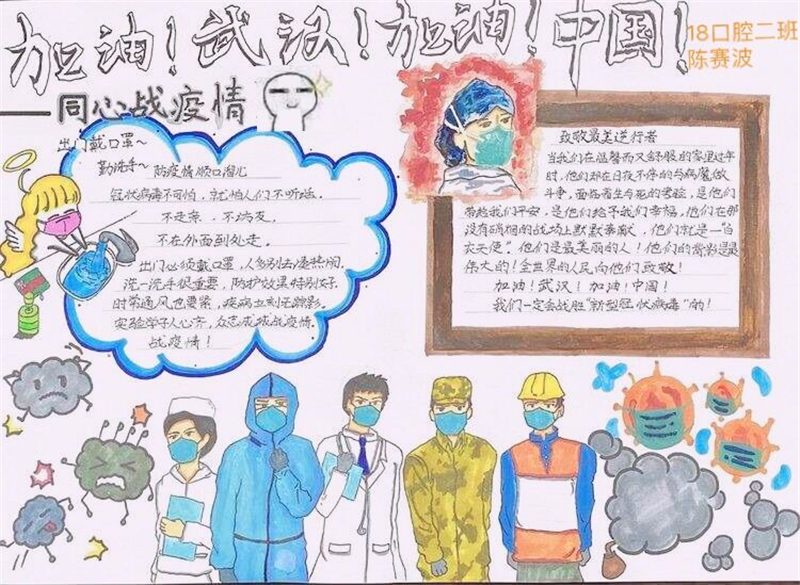 加油！武汉！加油！中国！
18口腔二班
陈赛波
同心战疫情
出门戴口罩~
勤洗手~
防疫情顺口溜儿
冠状病毒不可怕，就怕人们不听话。
不走亲，不访友，
不在外面到处走。
出门必须戴口罩，人多别去凑热闹。
洗一洗手很重要，防护效果特别好
时常通风也要紧，疾病立刻无踪影。
实验学子人心齐，众志成城战疫情。
战疫情！
致敬最美逆行者
当我们在温馨而又舒服的家里过年
时，他们却在日夜不停的与病魔做
斗争，面临着生与死的考验，是他们
带给我们平安，是他们给予我们幸福，他们在那
没有硝烟的战场上默默奉献，他们就是"白
衣天使"。他们是最美丽的人！他们的背影是最
伟大的！全世界的人民向他们致敬！
加油！武汉！加油！中国！
我们一定会战胜"新型冠状病毒"的！